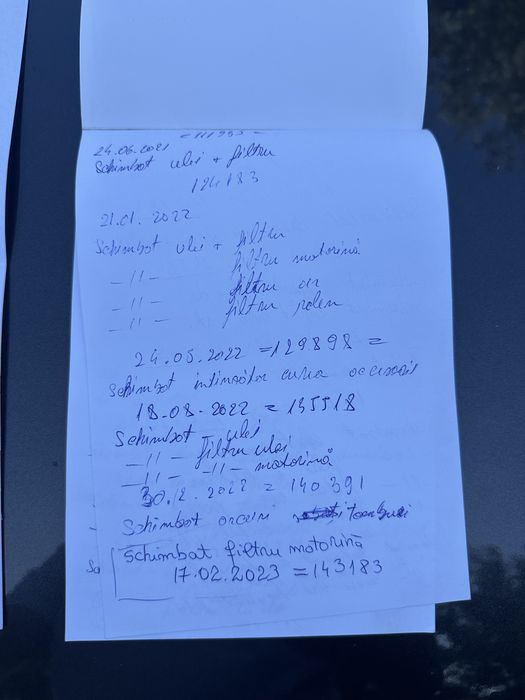 24.06.2021
Schimbat ulei + filtru
124183
21.01.2022
Schimbat ulei + filtru
-//- filtru motorină
-//- filtru aer
-//- filtru polen
24.05.2022 = 129898 =
Schimbat intinzător curea accesorii
18.08.2022 = 135518
Schimbat ulei
-//- filtru ulei
-//- -//- motorină
30.12.2022 = 140391
Schimbat
Schimbat filtru motorină
17.02.2023 = 143183